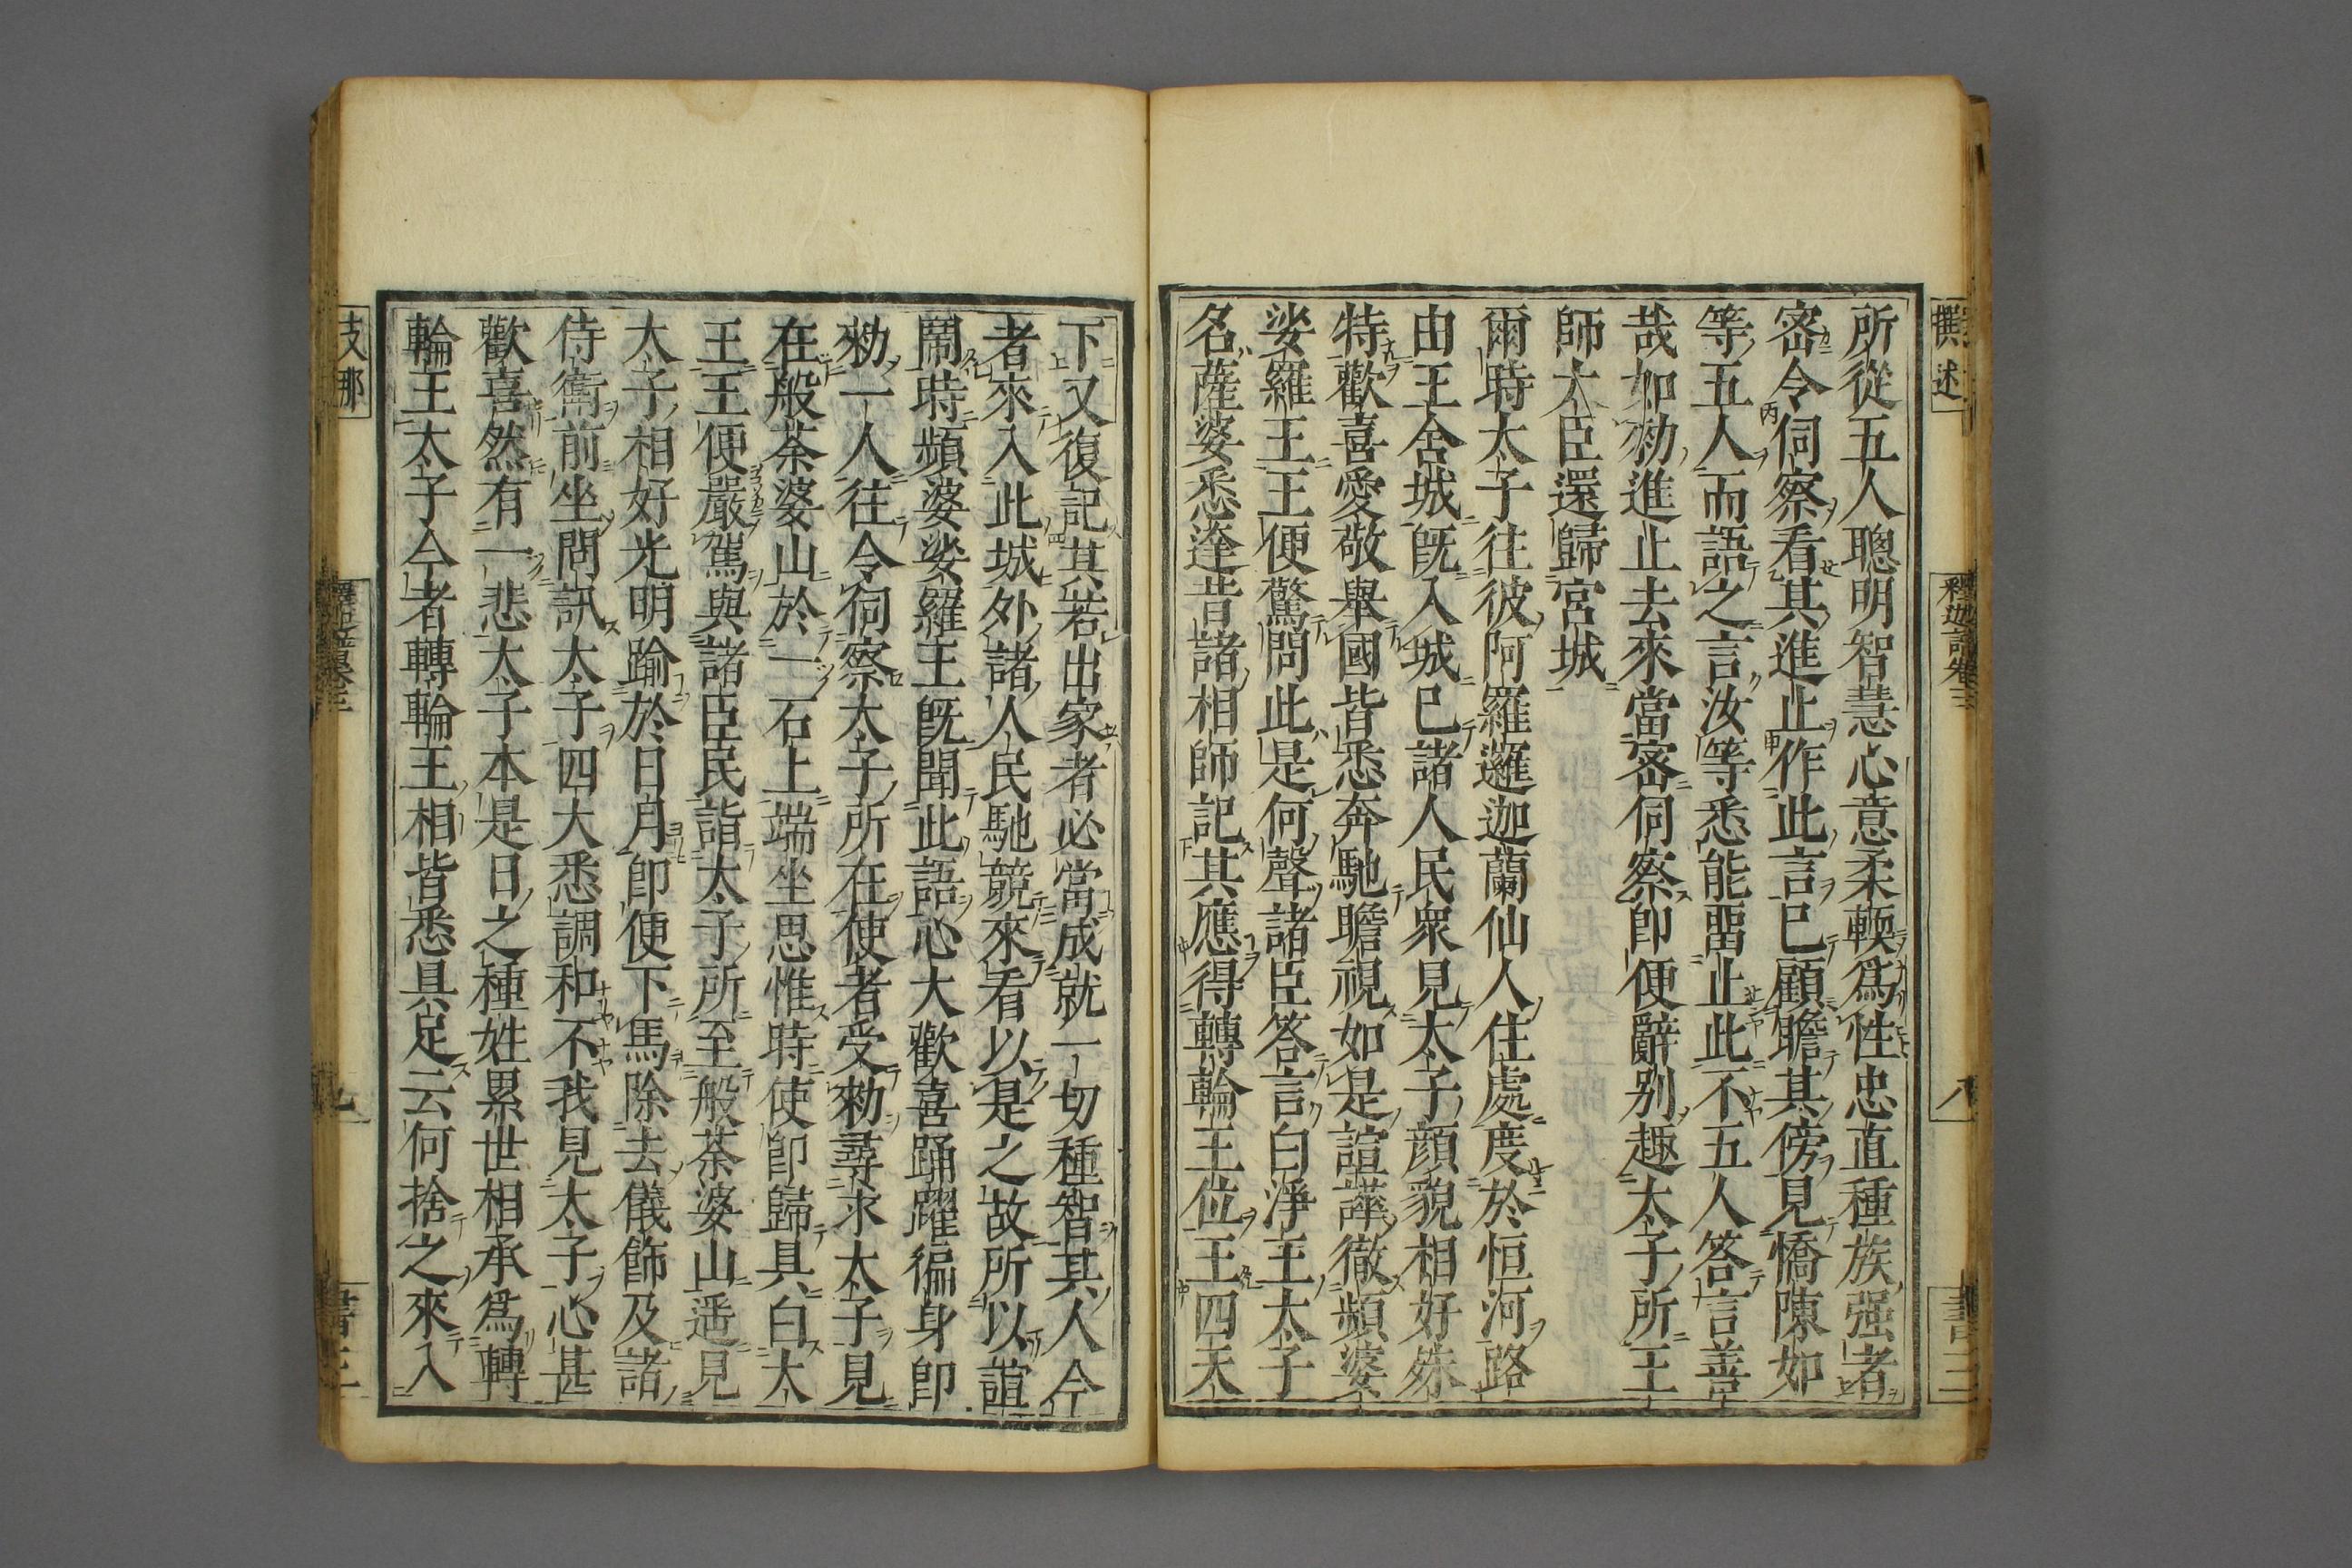 撰述
釋迦譜卷三
八
書三
所從五人聰明智慧心意柔輭爲性忠直種族强者
宻令伺察看其進止作此言已顧瞻其傍見憍陳如
等五人而語之言汝等悉能畱止此不五人答言善
哉如勑進止去來當宻伺察即便辭别趣太子所王
師大臣還歸宮城
爾時太子往彼阿羅邏迦蘭仙人住處度於恒河路
由王舍城旣入城已諸人民衆見太子顔貌相好殊
特歡喜愛敬舉國皆悉奔馳瞻視如是諠譁徹頻婆
娑羅王王便驚問此是何聲諸臣答言白淨王太子
名薩婆悉達昔諸相師記其應得轉輪王位王四天
下又復記其若出家者必當成就一切種智其人今
者來入此城外諸人民馳競來看以是之故所以諠
鬧時頻婆娑羅王旣聞此語心大歡喜踊躍徧身即
勑一人往令伺察太子所在使者受勑尋求太子見
在般茶婆山於一石上端坐思惟時使即歸具白太
王王便嚴駕與諸臣民詣太子所至般茶婆山遥見
太子相好光明踰於日月即便下馬除去儀飾及諸
侍衛前坐問訊太子四大悉調和不我見太子心甚
歡喜然有一悲太子本是日之種姓累世相承爲轉
輪王太子今者轉輪王相皆悉具足云何捨之來入
支那